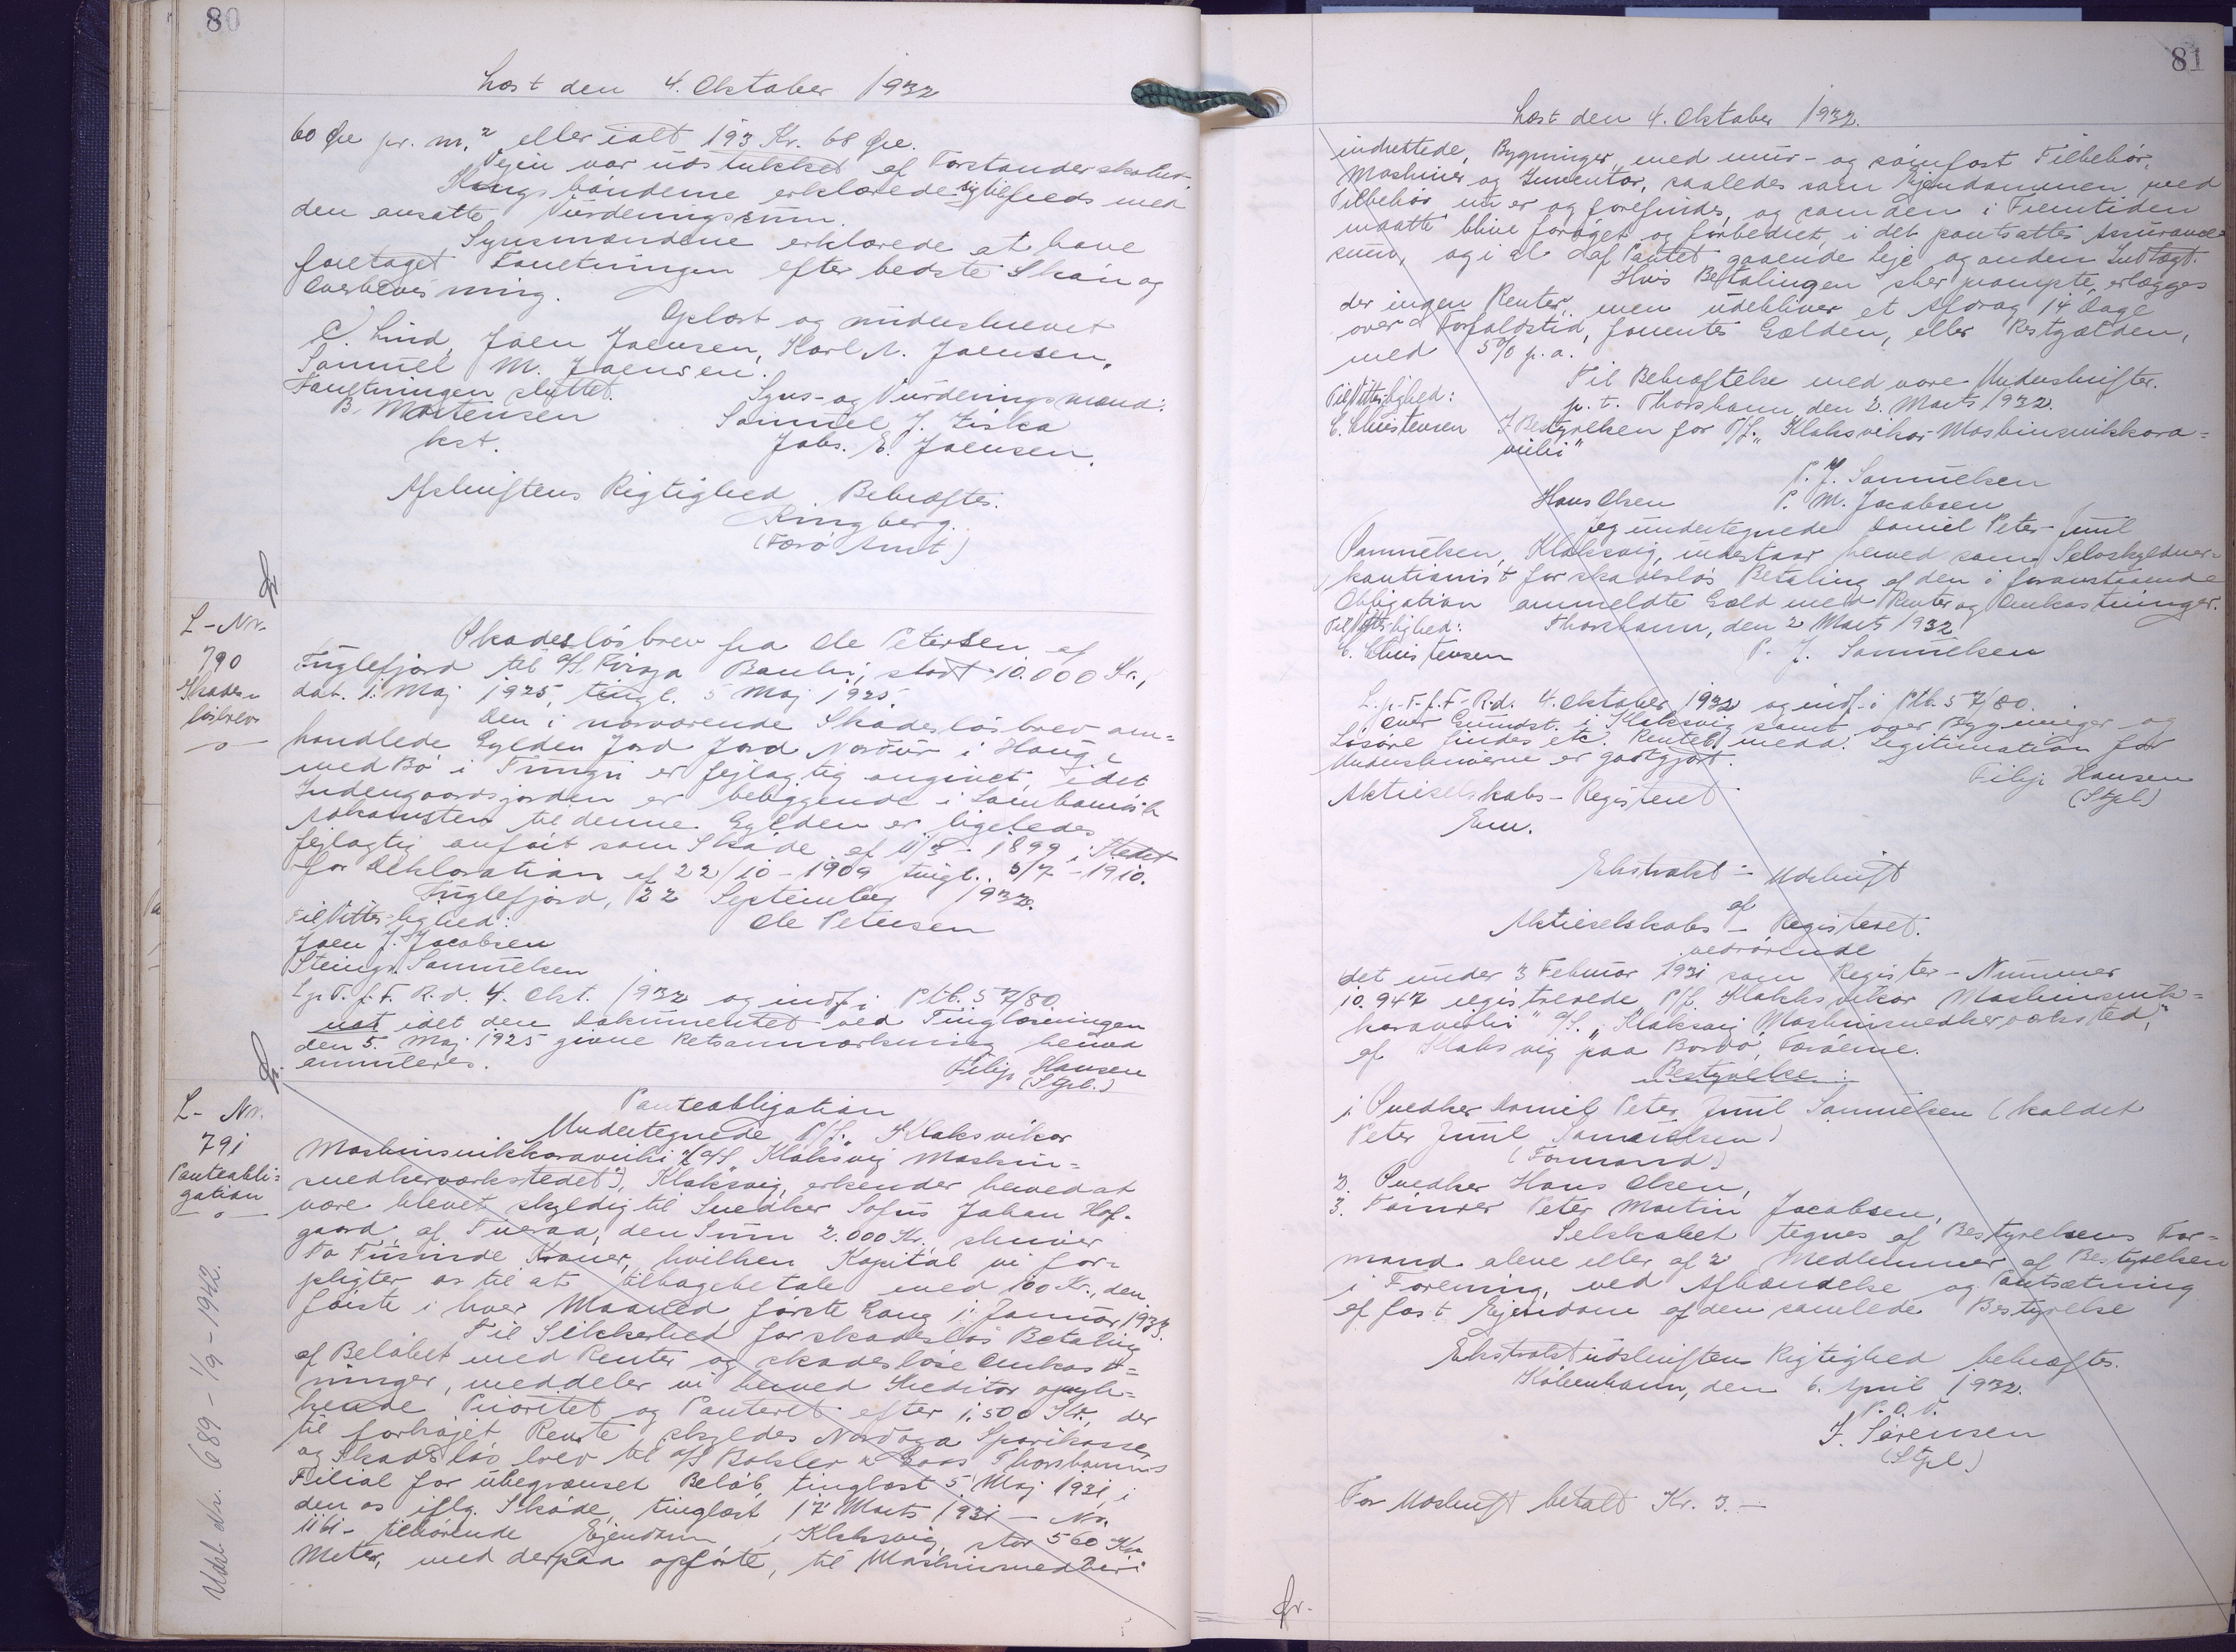 80
Læst den 4. Oktober 1932
60 Øre pr. m.² eller ialt 193 Kr. 68 Øre.
Vejen var udstukket af Forstanderskabet.
Kongsbønderne erklærede sig tilfreds med
den ansatte Vurderingssum.
Synsmændene erklærede at have
foretaget Forretningen efter bedste Skøn og
Overbevisning.
Oplæst og underskrevet
Lind, Joen Joensen, Karl N. Joensen,
Samuel M. Joensen.
Forretningen sluttet.
Syns- og Vurderingsmænd:
B. Mortensen
Samuel J. Ziska
kst.
Johs. E. Joensen.
Afskriftens Rigtighed Bekræftes.
Ringberg.
(Færø Amt)
L-Nr.
790
Skades
løsbrev
Skadesløsbrev fra Ole Petersen af
Fuglefjord til A/S Føroya Banki, stort 10.000 Kr.,
dat. 1. Maj 1925, tingl. 5 Maj 1925.
Den i nærværende Skadesløsbrev om-
handlede Gylden Jord Jord Nordur i Haug
med Bø i Trungi er fejlagtig angivet, idet
Indengaardsjorden er beliggende i Lambanúsh
Adkomsten til denne Gylden er ligeledes
fejlagtig anført som Skøde af 11/3 - 1899 i Stedet
for Deklaration af 22/10 - 1909 tingl. 5/7 - 1910.
Fuglefjord, 22 September 1932.
Til Vitterlighed:
Ole Petersen
Joen J. Jacobsen
Steingr. Samuelsen
L. p. T. f. F. R. d. 4. Okt. 1932 og indf. i Ptb. 57/80
idet den Dokumentet ved Tinglæsningen
den 5. Maj 1925 givne Retsanmærkning herved
annulleres.
Filip Hansen
(Stpl.)
L- Nr.
791
Panteobli-
gation
Panteobligation
Undertegnede P/f. "Klaksvikar
Maskinsnikkaravirki" (A/S "Klaksvig Maskin-
snedkerværkstedet"), Klaksvig, erkender herved at
være blevet skyldig til Snedker Sofus Johan Hof-
gaard, af Tveraa, den Sum 2.000 Kr. skriver
To Tusinde Kroner, hvilken Kapital vi for-
pligter os til at tilbagebetale med 100 Kr., den
første i hver Maaned første Gang i Januar 1933.
Til Sikkerhed for skadesløs Betaling
af Beløbet med Renter og skadesløse Omkost-
ninger, meddeler vi herved Kreditor opryk-
kende Prioritet og Panteret efter 1.500 Kr., der
til forhøjet Rente skyldes Nordoya Sparikassa
og Skadesløsbrev til A/S Thorshavns
Filial for ubegrænset Beløb, tinglæst 5 Maj 1931, i
den os iflg. Skøde, tinglæst 17 Marts 1931 - Nr.
1161 - tilhørende Ejendom i Klaksvig, stor 560 Kv
Meter, med derpaa opførte, til Maskinsnedkeri
Udsl. dr. 689 - 1/9 - 1942.
81
Læst den 4. Oktober 1932.
indrettede, Bygninger, med mur- og sømfast Tilbehør,
Maskiner og Inventar, saaledes som Ejendommen med
Tilbehør nu er og forefindes, og som den i Fremtiden
maatte blive forøget og forbedret, i det pantsattes Assurance-
sum, og i al af Pantet gaaende Leje og anden Indtægt.
Hvis Betalingen sker prompte, erlægges
der ingen Renter, men udebliver et Afdrag 14 Dage
over Forfaldstid, forrentes Gælden, eller Restgælden,
med 5% p.a.
Til Bekræftelse med vore Underskrifter.
Til Vitterlighed:
p.t. Thorshavn, den 2. Marts 1932.
C. Christensen
I Bestyrelsen for P/f. "Klaksvikar Maskinsnikkara-
virki"
P. J. Samuelsen
Hans Olsen
P. M. Jacobsen
Jeg undertegnede Daniel Peter Juul
Samuelsen, Klaksvig, indestaar herved som Selvskyldner-
kautionist for skadesløs Betaling af den i foranstaaende
Obligation anmeldte Gæld med Renter og Omkostninger.
Til Vitterlighed:
Thorshavn, den 2 Marts 1932
C. Christensen
P. J. Samuelsen
L. p. T. f. F. R. d. 4. Oktober 1932 og indf. i Ptb. 57/80.
Over Grundst. i Klaksvig samt over Bygninger og
Løsøre findes etc. Rentet medd. Legitimation for
Underskriverne er godtgjort.
Filip Hansen
(Stpl)
Aktieselskabs-Registeret
Em.
Ekstrakt - Udskrift
af
Aktieselskabs-Registeret.
vedrørende
det under 3 Februar 1931 som Register-Nummer
10.947 registrerede P/f. Klakksvikar Maskinsnik-
karavirki" A/S. "Klaksvig Maskinsnedkerværksted,"
af Klaksvig paa Bordø, Færøerne.
Bestyrelse:
1 Snedker Daniel Peter Juul Samuelsen (kaldet
Peter Juul Samuelsen)
(Formand)
2. Snedker Hans Olsen,
3. Tømrer Peter Martin Jacobsen,
Selskabet tegnes af Bestyrelsens For-
mand alene eller af 2 Medlemmer af Bestyrelsen
i Forening, ved Afhændelse og Pantsætning
af fast Ejendom af den samlede Bestyrelse
Ekstraktudskriftens Rigtighed bekræftes.
København, den 6. April 1932.
P. O. V.
J. Sørensen
(Stpl.)
For Udskrift betalt Kr. 3.-